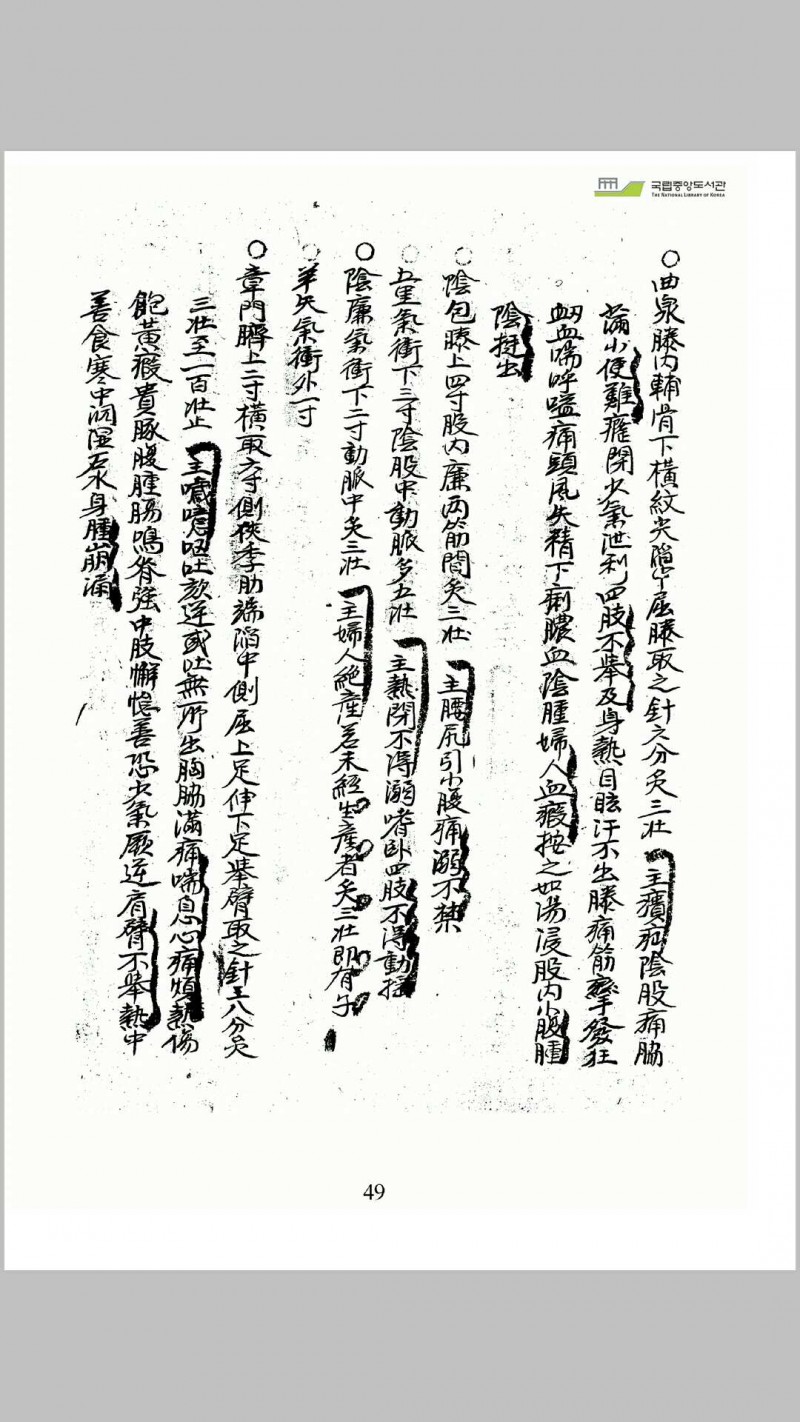 국립중앙도서관
THE NATIONAL LIBRARY OF KOREA
○曲泉膝內輔骨下橫紋尖陷中屈膝取之針六分灸三壯 主㿉疝陰股痛脇
滿小便難癃閉少氣泄利四肢不擧及身熱目眩汗不出膝痛筋攣發狂
衄血喘呼嗌痛頭風失精下痢膿血陰腫婦人血瘕按之如湯浸股內小腹腫
陰挺出
○陰包膝上四寸股內廉兩筋間灸三壯 主腰尻引小腹痛溺不禁
○五里氣衝下三寸陰股中動脈灸五壯 主熱閉不得溺嗜臥四肢不得動搖
○陰廉氣衝下二寸動脈中灸三壯 主婦人絶產若未經生產者灸三壯卽有子
○羊矢氣衝外一寸
○章門臍上二寸橫取六寸側俠季肋端陷中側屈上足伸下足擧臂取之針六八分灸
三壯至一百壯止 主噦噫嘔吐欬逆或吐無所出胸脇滿痛喘息心痛煩熱傷
飽黃瘕賁豚腹腫腸鳴脊强中肢懈惰善恐少氣厥逆肩臂不擧熱中
善食寒中洞泄石水身腫崩漏
49